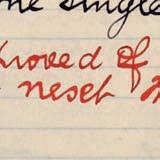 one single
proved of
neset